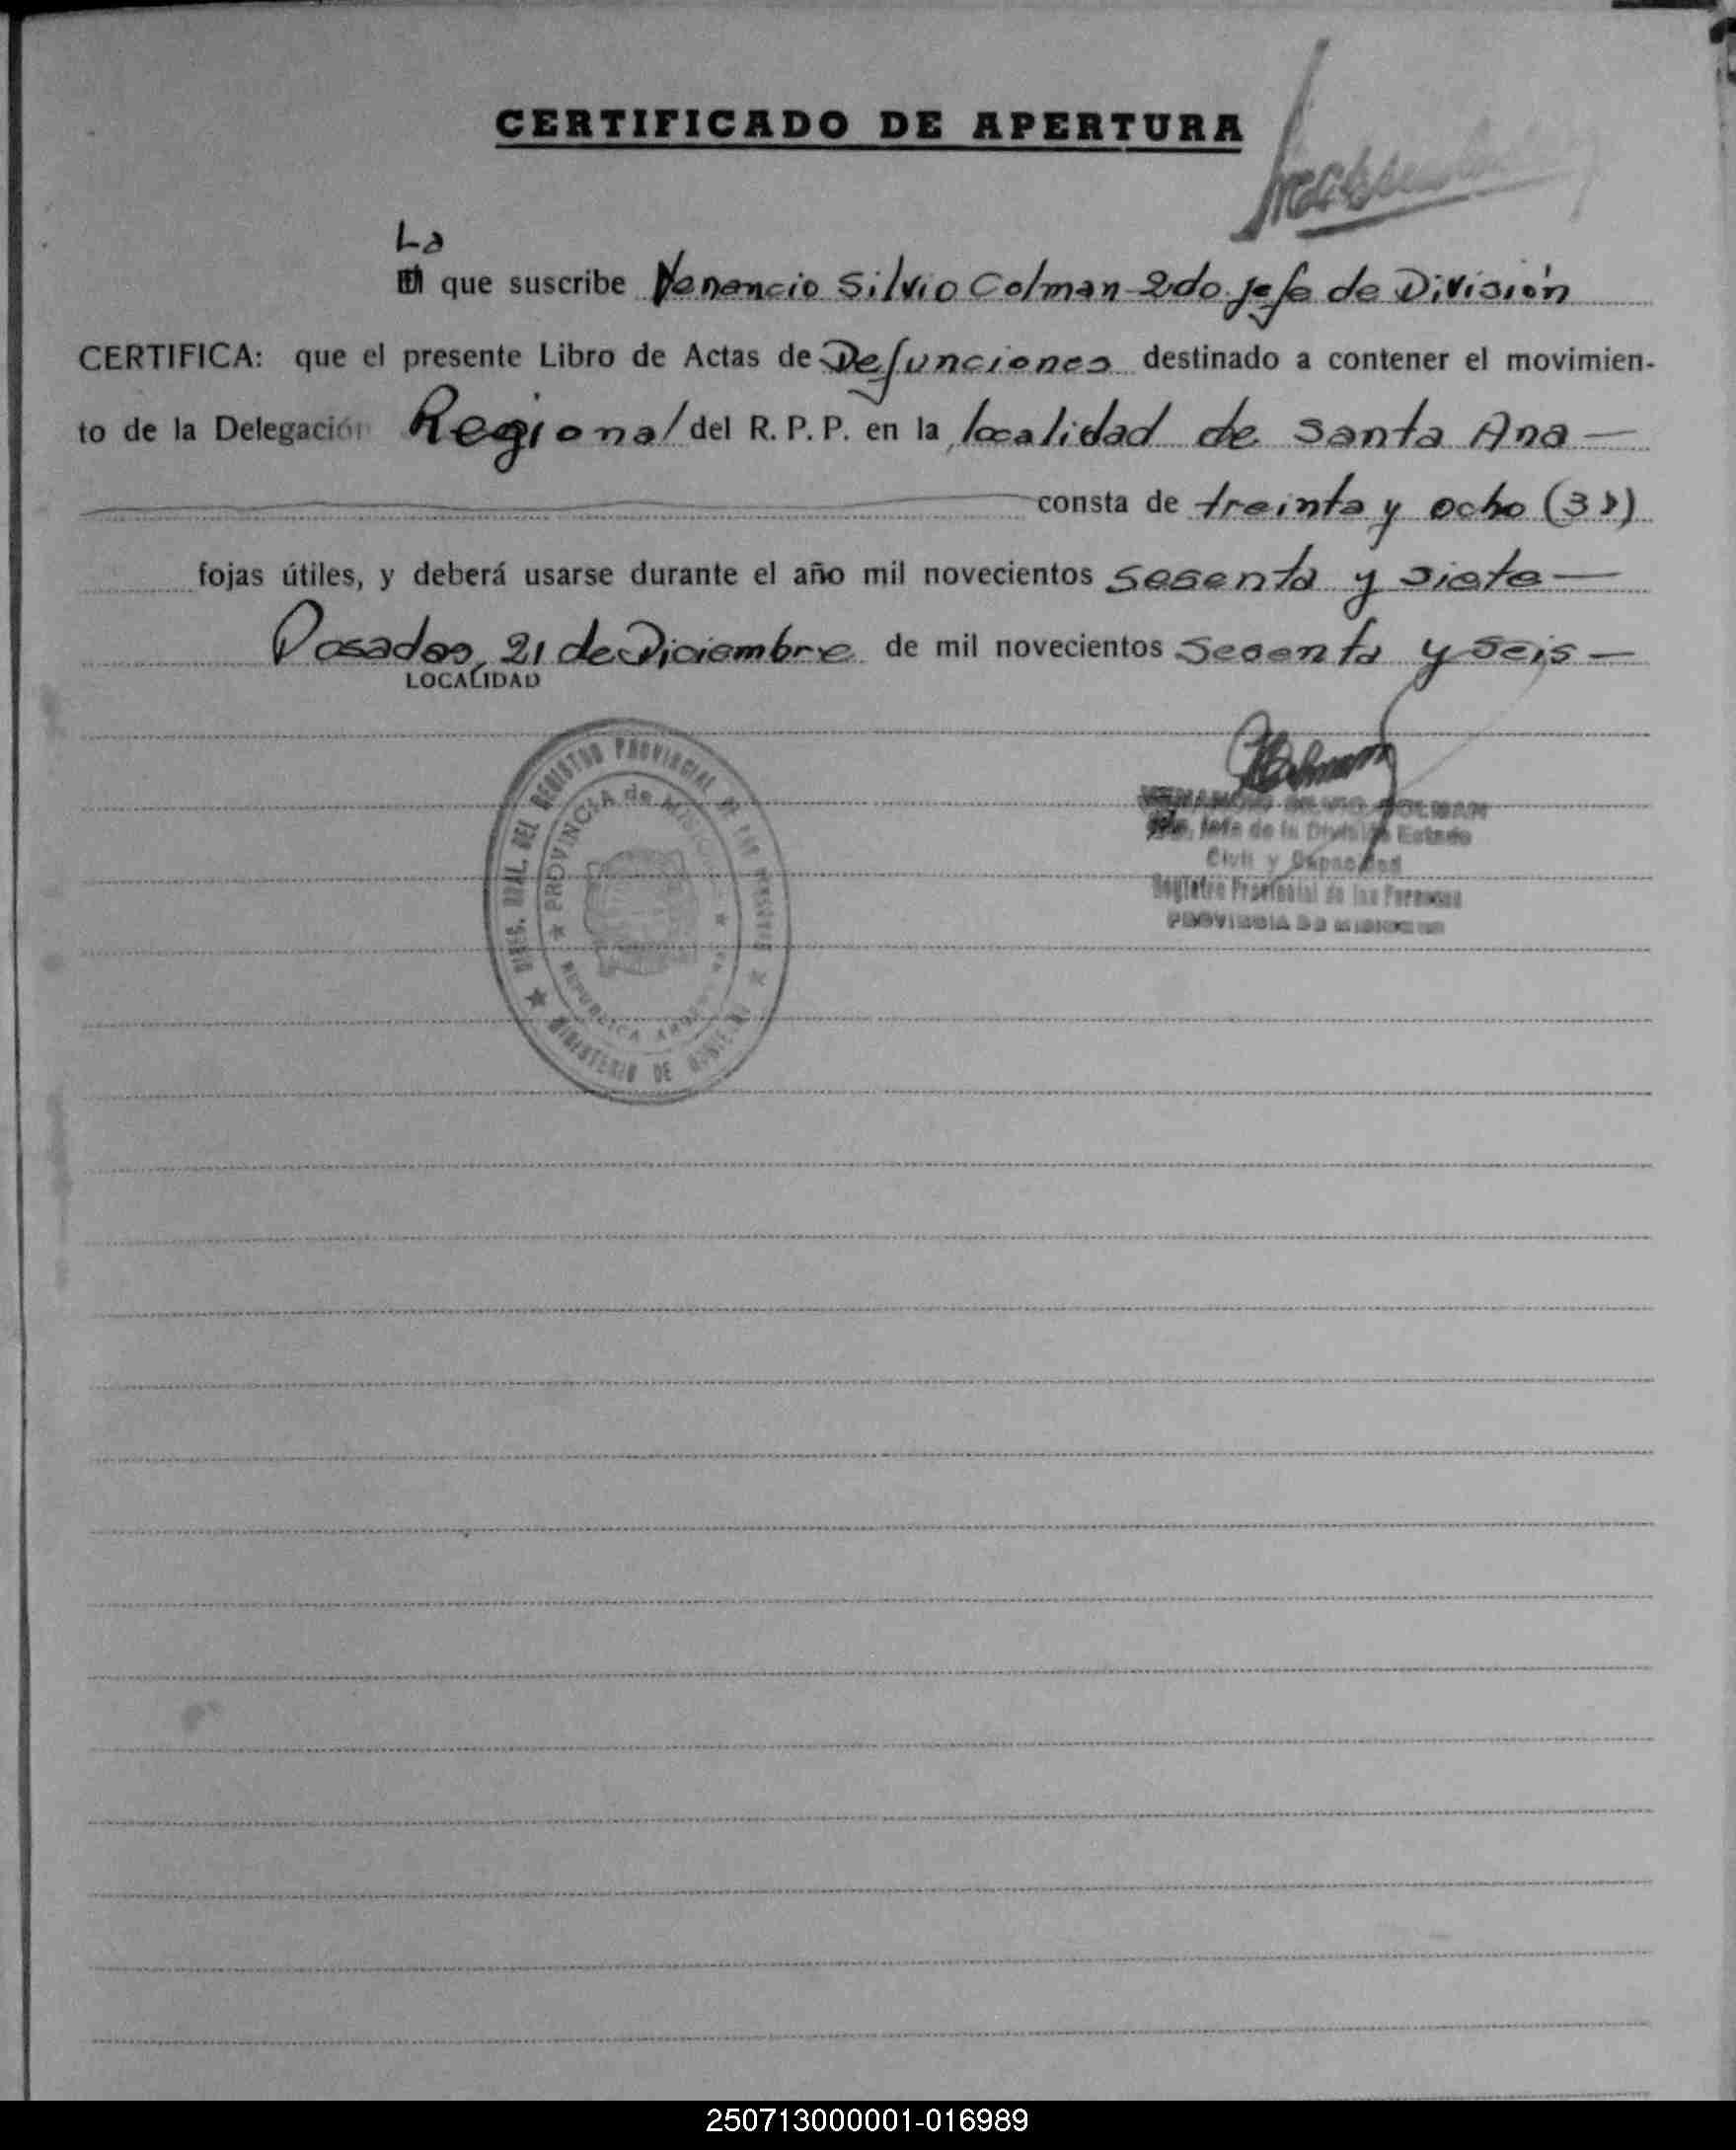 CERTIFICADO DE APERTURA
La
que suscribe Venancio Silvio Colman 2do Jefe de División
CERTIFICA: que el presente Libro de Actas de Defunciones destinado a contener el movimien-
to de la Delegación Regional del R. P. P. en la localidad de Santa Ana —
consta de treinta y ocho (38)
fojas útiles, y deberá usarse durante el año mil novecientos sesenta y siete —
Posadas, 21 de Diciembre de mil novecientos sesenta y seis —
LOCALIDAD
DIREC. GRAL. DEL REGISTRO PROVINCIAL DE LAS PERSONAS
PROVINCIA de MISIONES
REPUBLICA ARGENTINA
MINISTERIO DE GOBIERNO
Colman
VENANCIO SILVIO COLMAN
2do. Jefe de la División Estado
Civil y Capacidad
Registro Provincial de las Personas
PROVINCIA DE MISIONES
250713000001-016989